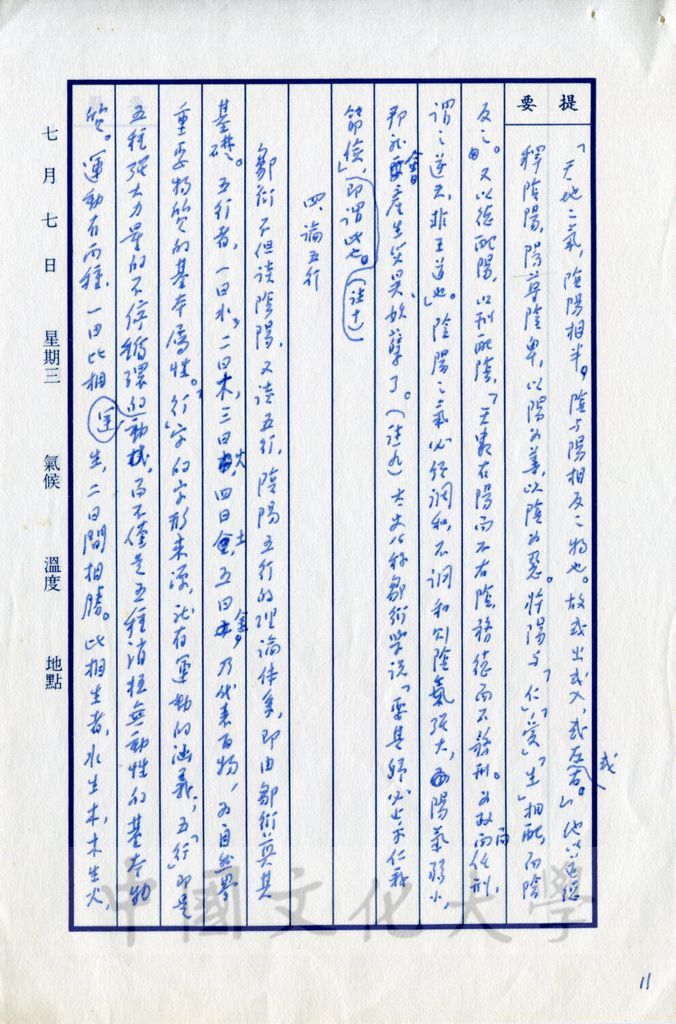 提要
「天地之氣，陰陽相半。陰與陽相反之物也。故或出或入，或左或右。」他以這您
釋陰陽，陽尊陰卑，以陽為善，以陰為惡。將陽與「仁」「愛」「生」相配，而陰
反之。又以德配陽，以刑配陰，「天數右陽而不右陰，務德而不務刑。為政而任刑，
謂之逆天，非王道也。」陰陽之氣必經調和，不調和則陰氣強大，而陽氣弱小，
那就會產生災異、妖孽了。（注九）太史公稱鄒衍學說「要其歸必止乎仁義
節儉」，即謂此也。（注十）
四、論五行
鄒衍不但談陰陽，又談五行，陰陽五行的理論体系，即由鄒衍奠其
基礎。五行者，一曰水，二曰木，三曰火，四曰土，五曰金，乃代表百物，為自然界
重要物質的基本屬性。「行」字的字形來源，就有運動的涵義，「五行」即是
五種強大力量的不停循環的運動，而不僅是五種消極無動性的基本物
質。運動有兩種，一曰比相生，二曰間相勝。比相生者，水生木，木生火，
七月七日 星期三 氣候 溫度 地點
中國文化大學
11